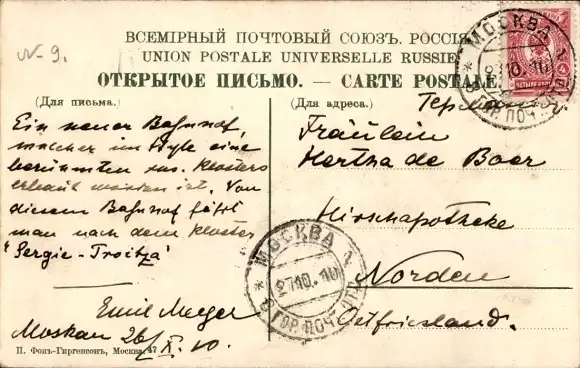 N. 9.
ВСЕМІРНЫЙ ПОЧТОВЫЙ СОЮЗЪ. РОССІЯ
UNION POSTALE UNIVERSELLE RUSSIE
ОТКРЫТОЕ ПИСЬМО. — CARTE POSTALE
(Для письма.)
Ein neuer Bahnhof,
welcher im Style eine
berühmten rus. Klosters
erbaut worden ist. Von
diesem Bahnhof fährt
man nach dem Kloster
"Sergie-Troitza"
Emil Meyer
Moskau 26/X. 10.
П. Фонъ-Гиргенсонъ, Москва. 47
(Для адреса.)
Германія
Fräulein
Hertha de Boer
Hirschapotheke
Norden
Ostfriesland.
МОСКВА 1
27.10.10
ГОР. ПОЧТ
МОСКВА 1
27.10.10
ГОР. ПОЧ